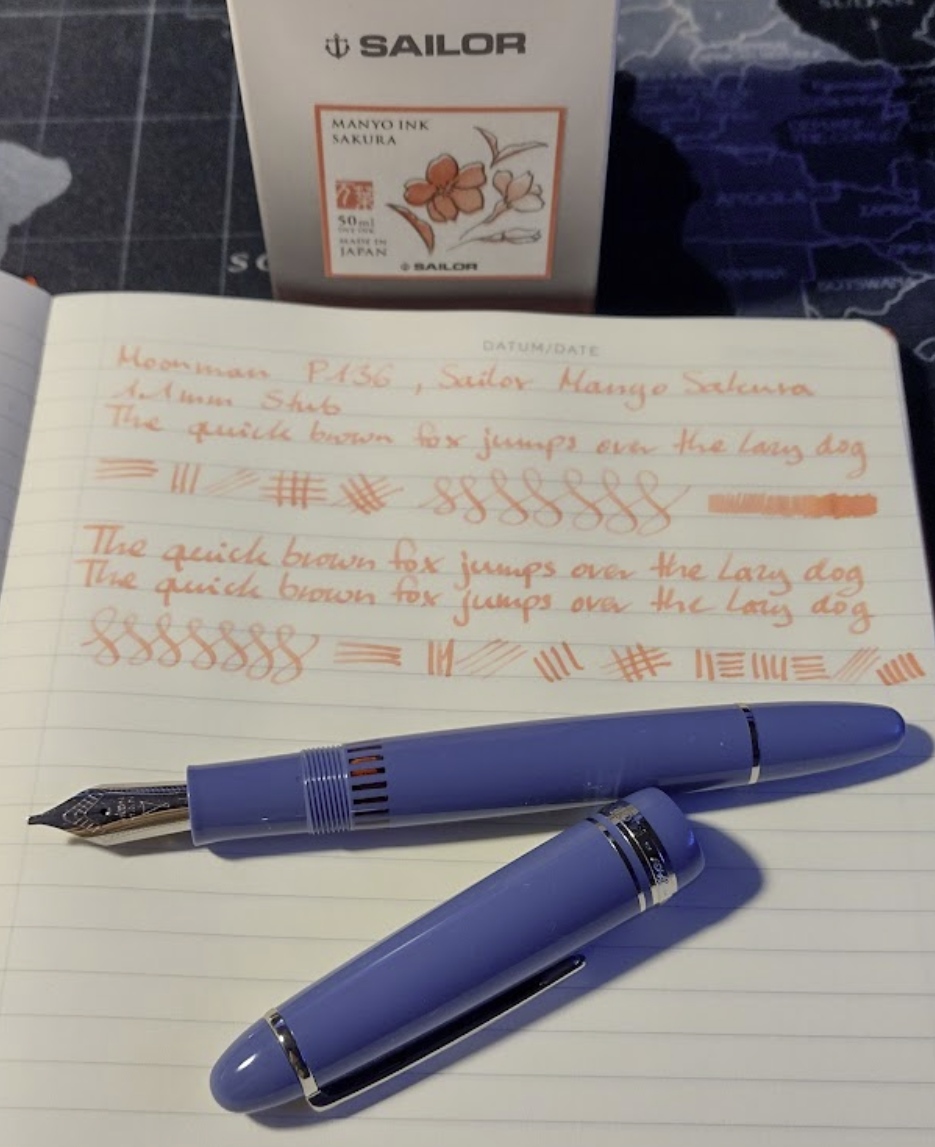 SAILOR
MANYO INK
SAKURA
50ml
DYE INK
MADE IN
JAPAN
SAILOR
DATUM/DATE
Moonman P136, Sailor Manyo Sakura
1.1mm Stub
The quick brown fox jumps over the lazy dog
The quick brown fox jumps over the lazy dog
The quick brown fox jumps over the lazy dog